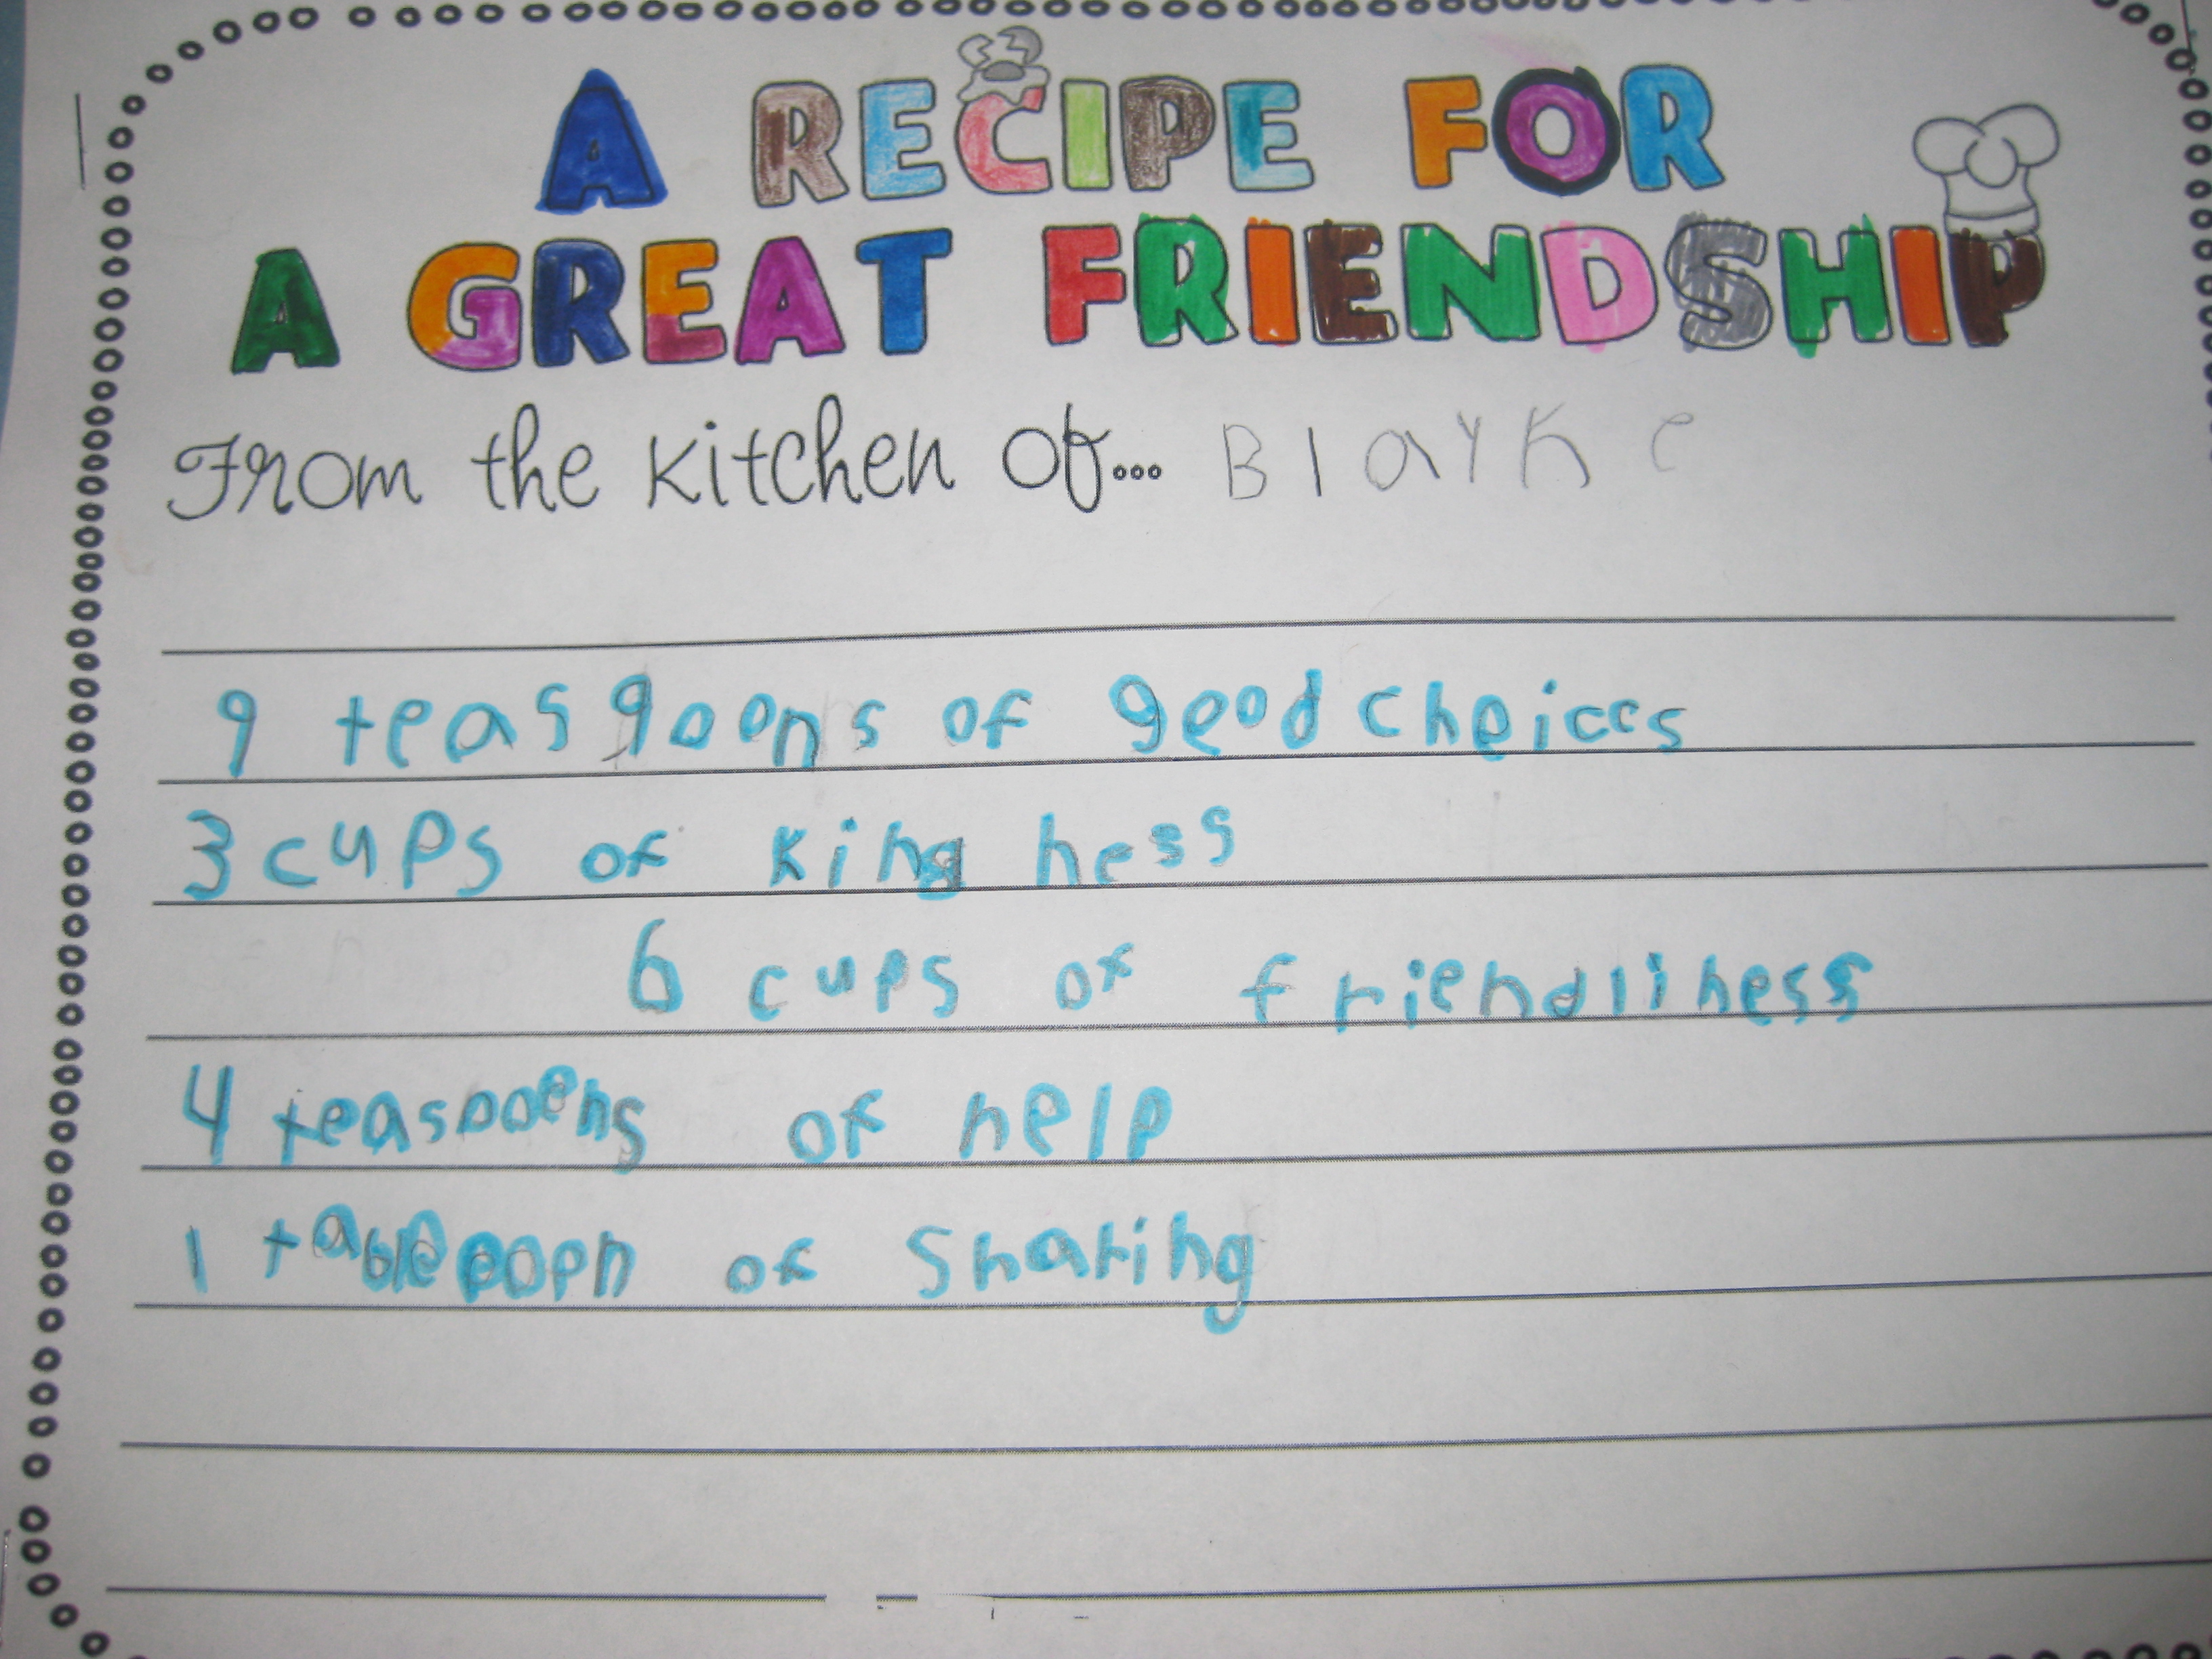 A RECIPE FOR
A GREAT FRIENDSHIP
From the Kitchen of... Blayke
9 teasgoons of good choices
3 cups of king ness
6 cups of friendliness
4 teaspoons of help
1 tablepoon of Sharing